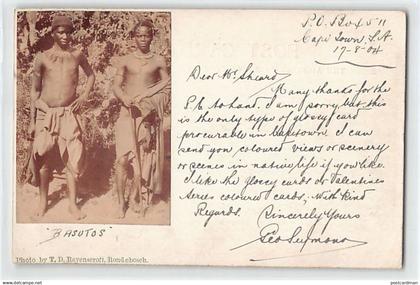 P.O. Box 511
Cape Town, S.A.
17-8-04
Dear Mr Sheard
Many thanks for the
P.C. to hand. I am sorry but this
is the only type of glossy card
procurable in Capetown. I can
send you, coloured views or scenery
or scenes in native life if you like.
I like the glossy cards or Valentines
series coloured cards, with Kind
Regards. Sincerely Yours
Geo Seymons
"BASUTOS"
Photo by T. D. Ravenscroft, Rondebosch.